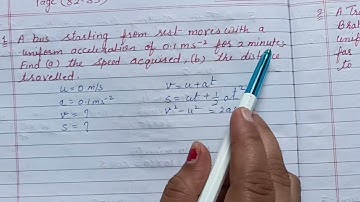 Page (82-83)
1 A bus starting from rest moves with a
uniform acceleration of 0.1 ms⁻² for 2 minutes
Find (a) the speed acquired, (b) the distance
travelled.
u = 0 m/s v = u + at
a = 0.1 ms⁻² s = ut + 1/2 at²
v = ? v² - u² = 2a
s = ?
2 A Tr
Bra
unif
far
to